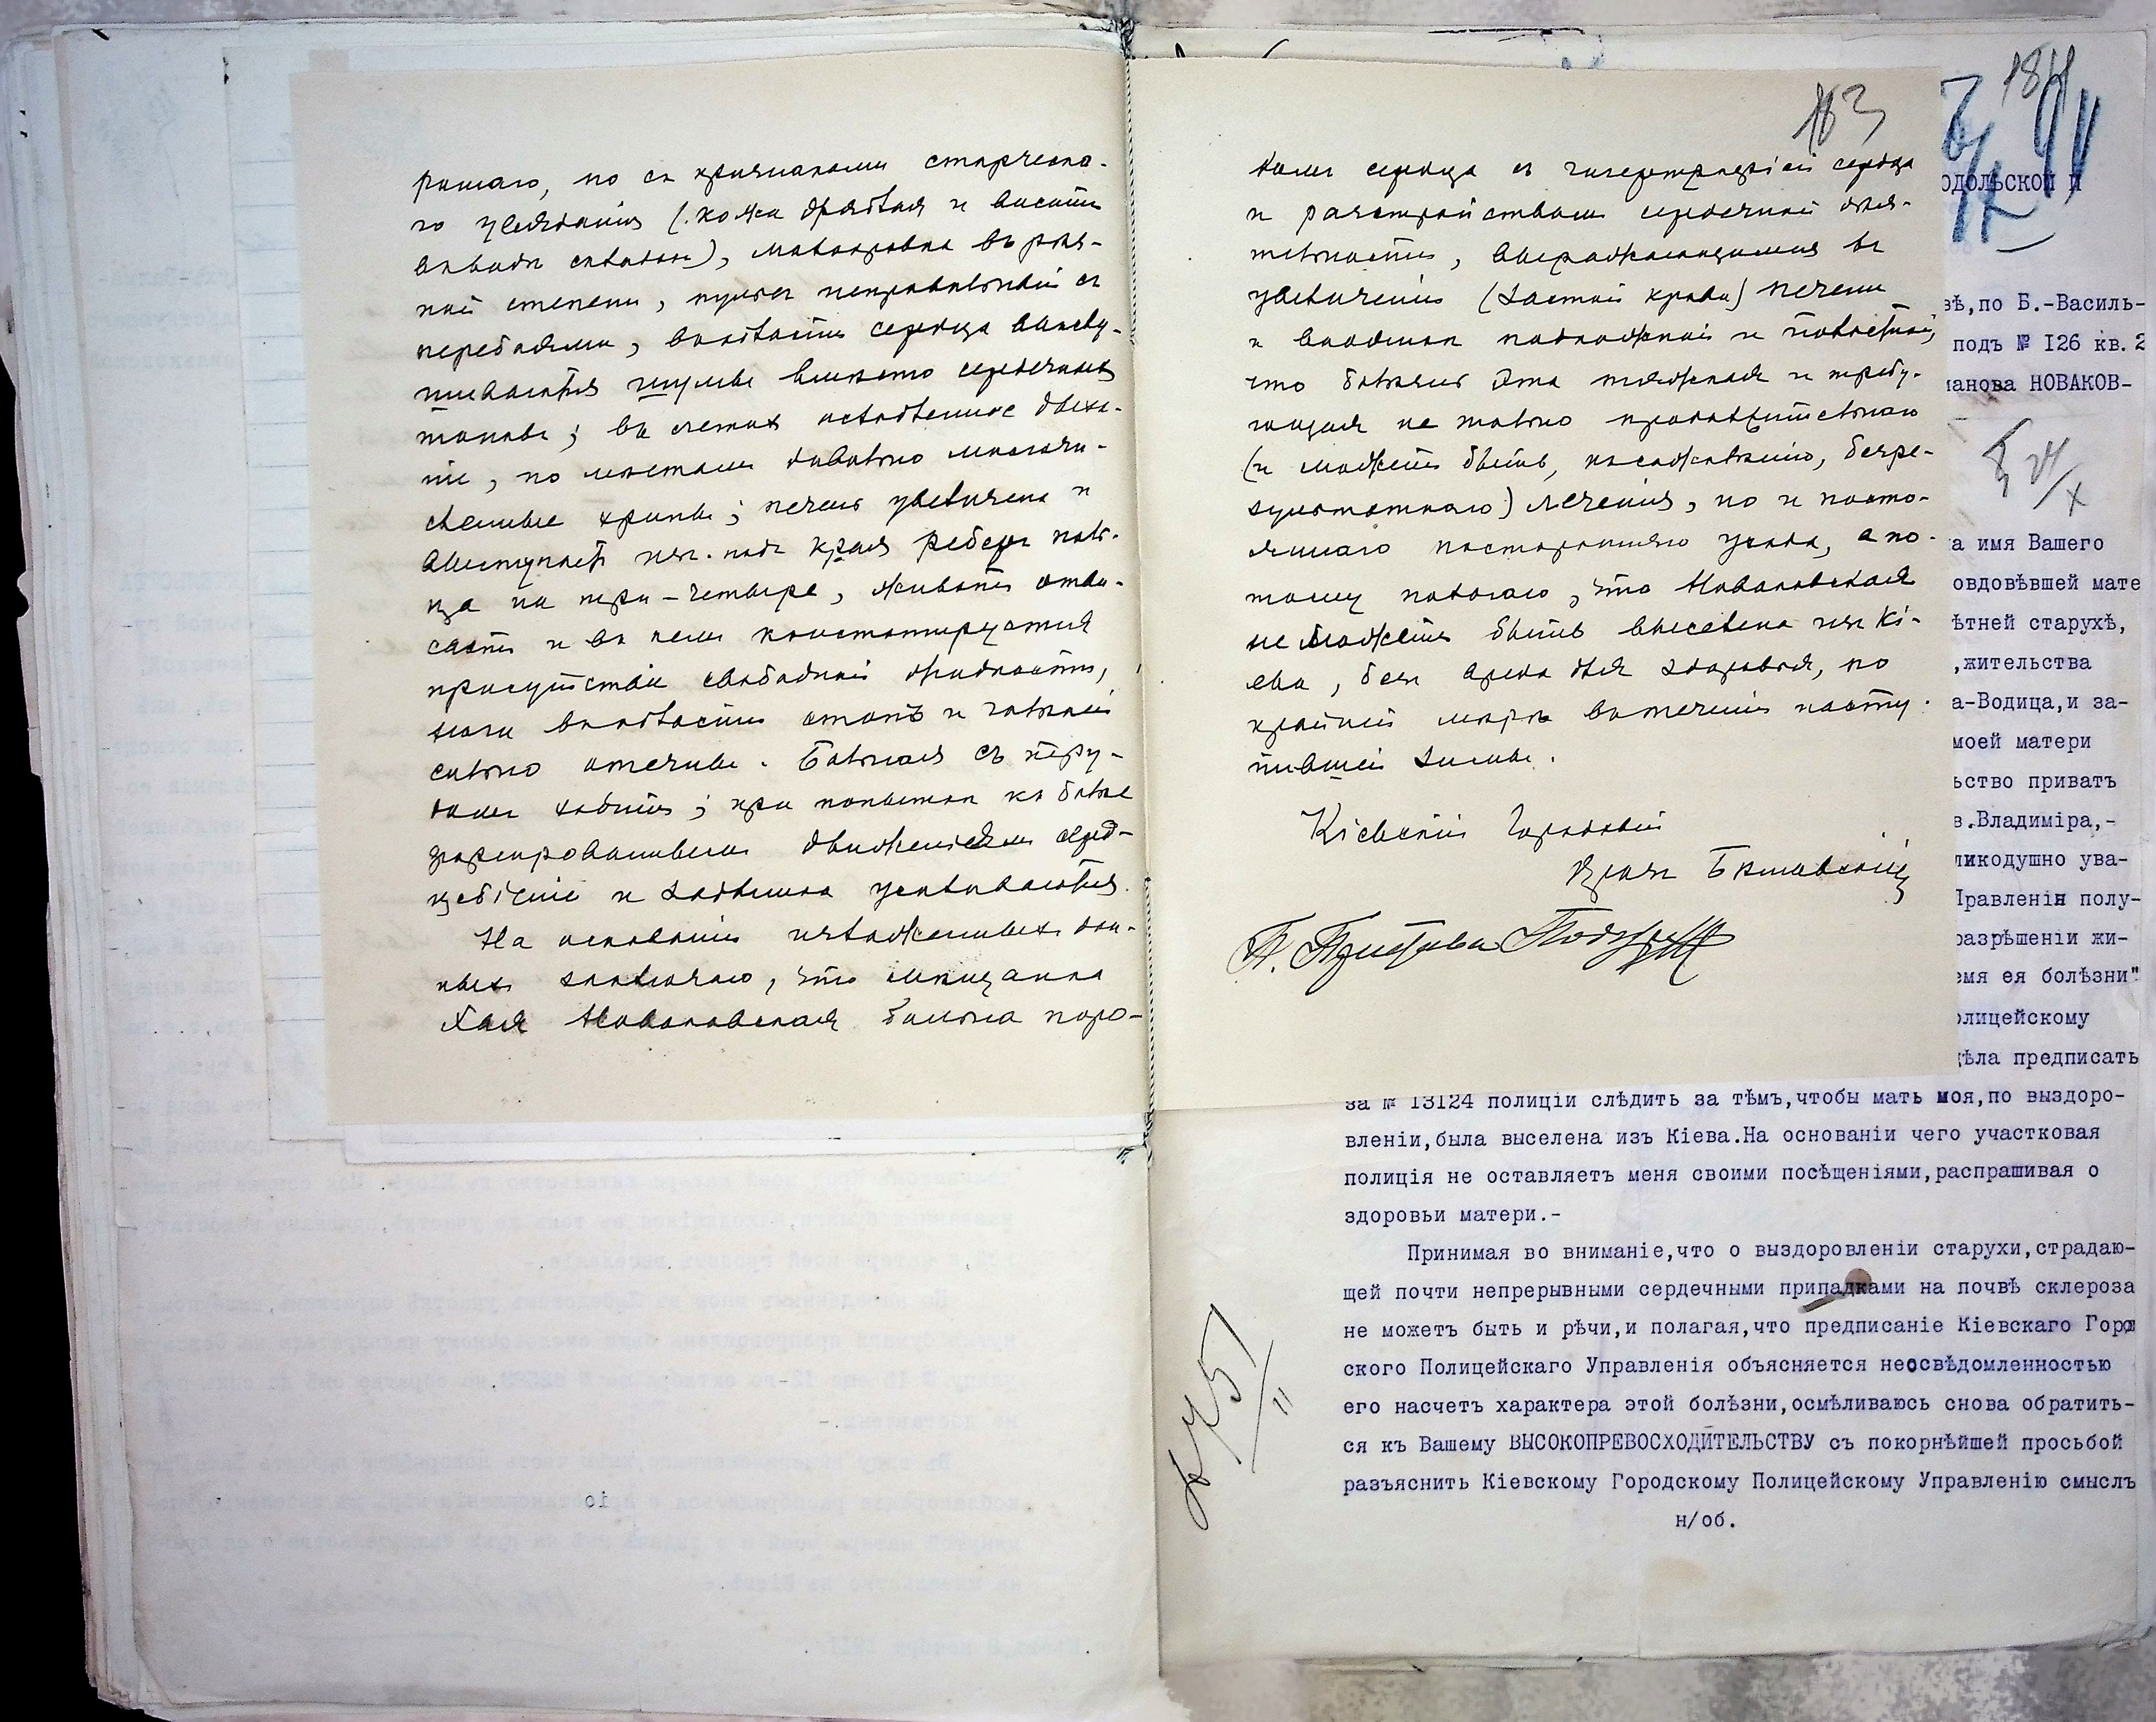 рошаго, но съ признаками старческа-
го увяданія (кожа дряблая и виситъ
въ видѣ складокъ), малокровна въ рѣз-
кой степени, пульсъ неправильный съ
перебоями, въ области сердца выслу-
шиваются шумы вмѣсто сердечныхъ
тоновъ; въ легкихъ ослабленное дыха-
ніе, по мѣстамъ довольно многочи-
сленные хрипы; печень увеличена и
выступаетъ изъ-подъ края реберъ паль-
ца на три-четыре, животъ отви-
саетъ и въ немъ констатируется
присутствіе свободной жидкости,
ноги въ области стопъ и голеней
сильно отечны. Больная съ тру-
домъ ходитъ; при попыткѣ къ болѣе
форсированнымъ движеніямъ серд-
цебіеніе и одышка усиливаются.
На основаніи изложенныхъ дан-
ныхъ заключаю, что мѣщанка
Хая Новаковская больна поро-
163
комъ сердца съ гипертрофіей сердца
и разстройствомъ сердечной дѣя-
тельности, выражающимися въ
увеличеніи (застой крови) печени
и водянкѣ подкожной и полостной,
что болѣзнь эта тяжелая и требу-
ющая не только продолжительнаго
(и можетъ быть, къ сожалѣнію, безре-
зультатнаго) леченія, но и посто-
яннаго посторонняго ухода, а по-
тому полагаю, что Новаковская
не можетъ быть выселена изъ Кі-
ева, безъ вреда для здоровья, по
крайней мѣрѣ въ теченіи насту-
пившей зимы.
Кіевскій Городовой
Врачъ
П. Пристава
184
одольской и
вѣ,по Б.-Василь-
подъ № 126 кв.2
манова НОВАКОВ-
а имя Вашего
овдовѣвшей мате
ѣтней старухѣ,
,жительства
а-Водица,и за-
моей матери
ьство приватъ
в.Владиміра,-
ликодушно ува-
Правленія полу-
разрѣшеніи жи-
емя ея болѣзни"
олицейскому
дѣла предписать
за № 13124 полиціи слѣдить за тѣмъ,чтобы мать моя,по выздоро-
вленіи,была выселена изъ Кіева.На основаніи чего участковая
полиція не оставляетъ меня своими посѣщеніями,распрашивая о
здоровьи матери.-
Принимая во вниманіе,что о выздоровленіи старухи,страдаю-
щей почти непрерывными сердечными припадками на почвѣ склероза
не можетъ быть и рѣчи,и полагая,что предписаніе Кіевскаго Город
ского Полицейскаго Управленія объясняется неосвѣдомленностью
его насчетъ характера этой болѣзни,осмѣливаюсь снова обратить-
ся къ Вашему ВЫСОКОПРЕВОСХОДИТЕЛЬСТВУ съ покорнѣйшей просьбой
разъяснить Кіевскому Городскому Полицейскому Управленію смыслъ
н/об.